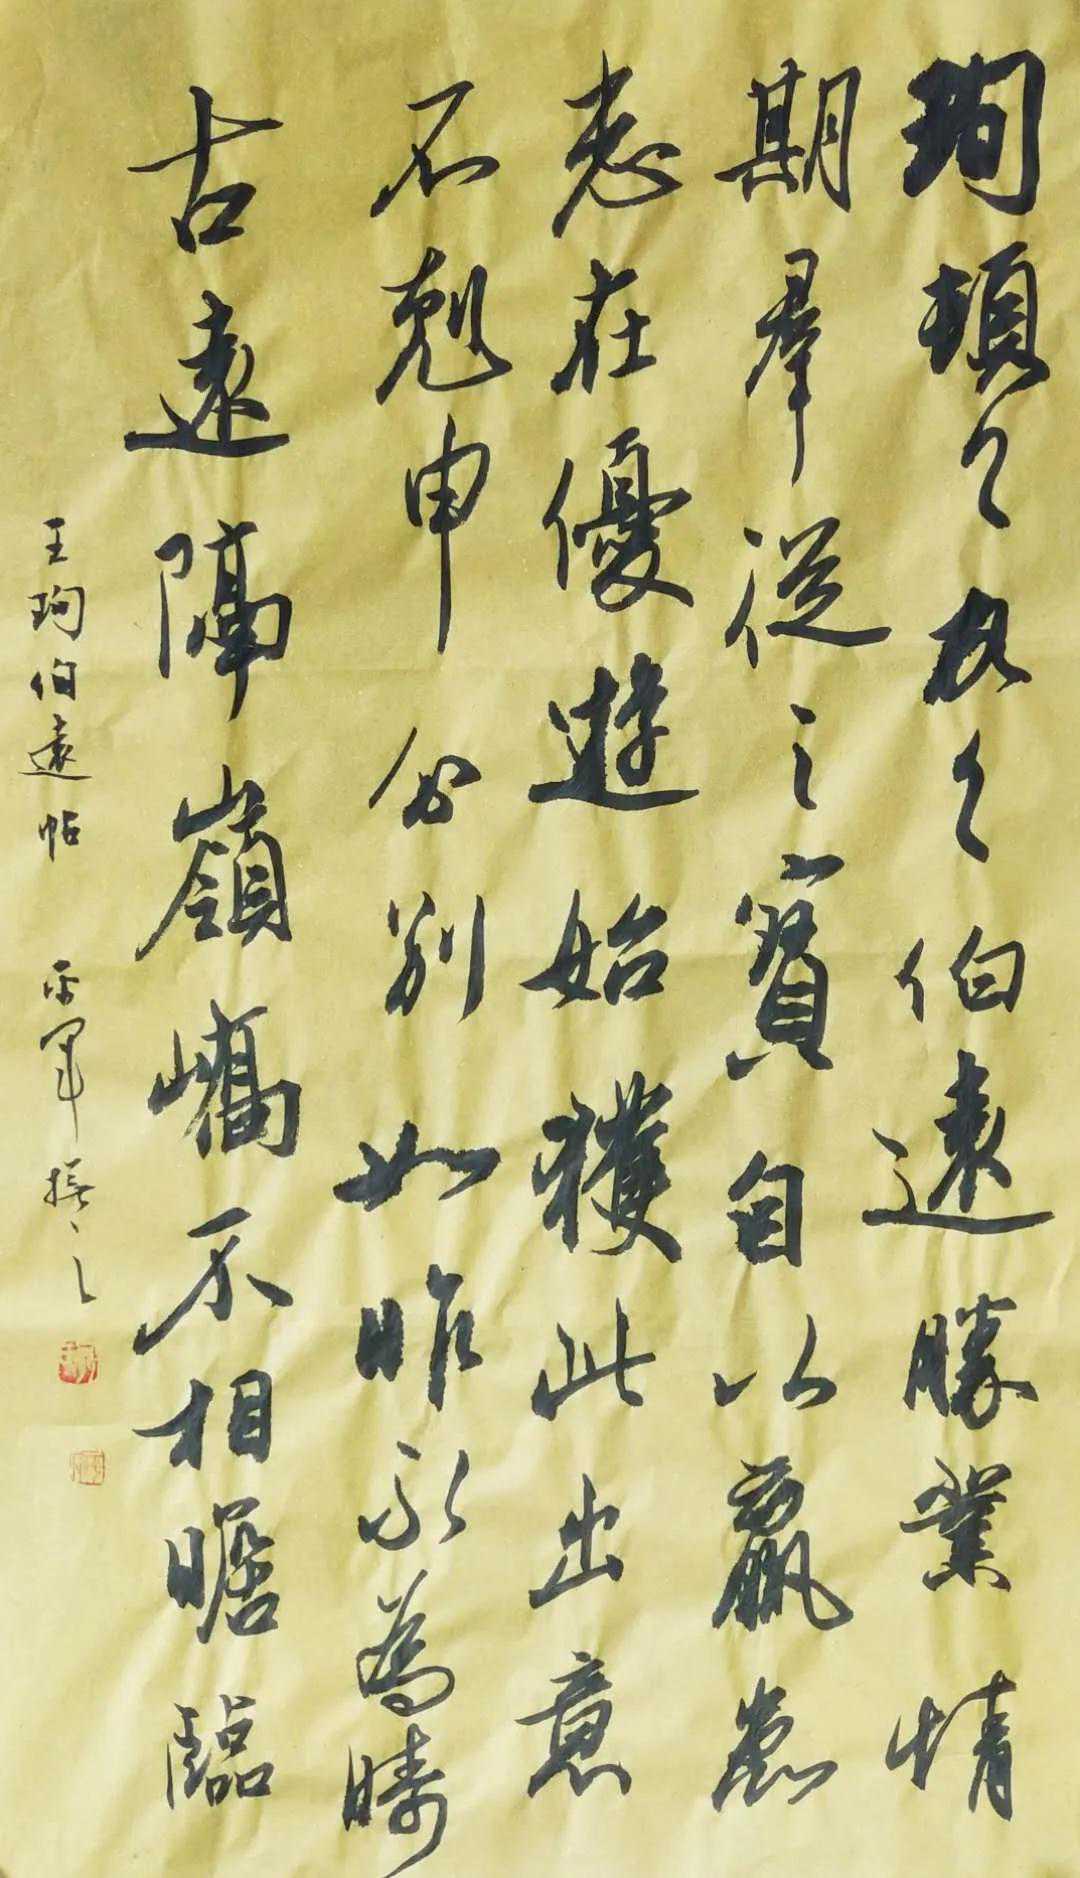 珣頓首頓首伯遠勝業情
期羣從之寶自以羸患
志在優遊始獲此出意
不剋申分別如昨永為疇
古遠隔嶺嶠不相瞻臨
王珣伯遠帖 軍 之